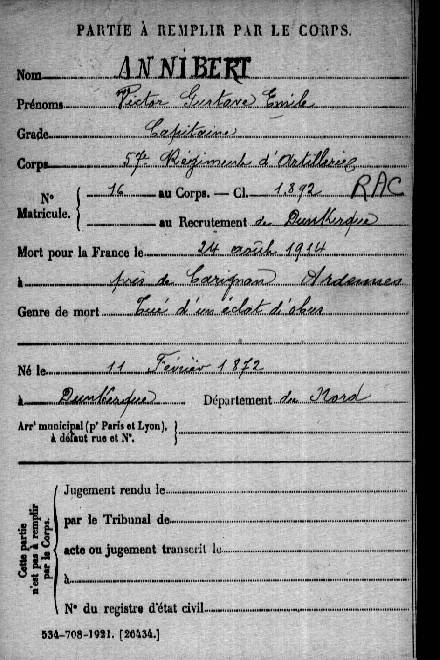 PARTIE À REMPLIR PAR LE CORPS.
Nom ANNIBERT
Prénoms Victor Gustave Emile
Grade Capitaine
Corps 57e Régiment d'Artillerie
N° Matricule. { 16 au Corps. — Cl. 1892 RAC
au Recrutement de Dunkerque
Mort pour la France le 24 août 1914
à près de Carignan Ardennes
Genre de mort Tué d'un éclat d'obus
Né le 11 Février 1872
à Dunkerque Département du Nord
Arrt municipal (pr Paris et Lyon), à défaut rue et N°. }
Cette partie n'est pas à remplir par le Corps.
Jugement rendu le
par le Tribunal de
acte ou jugement transcrit le
à
N° du registre d'état civil
534-708-1921. [26434.]